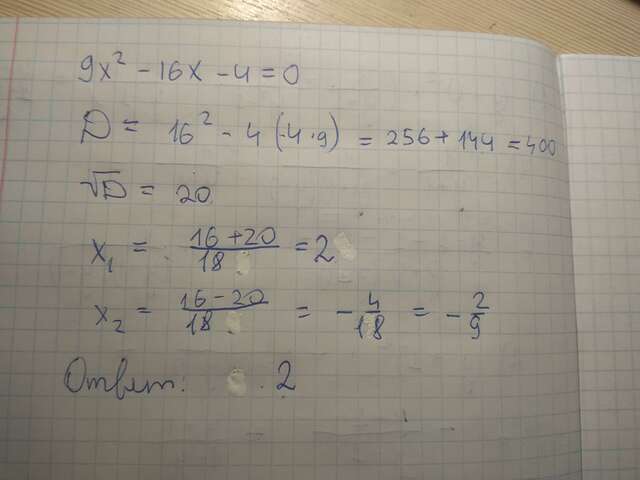 9x² - 16x - 4 = 0
D = 16² - 4 (-4·9) = 256 + 144 = 400
√D = 20
x₁ = (16 + 20)/18 = 2
x₂ = (16 - 20)/18 = -4/18 = -2/9
Ответ: 2